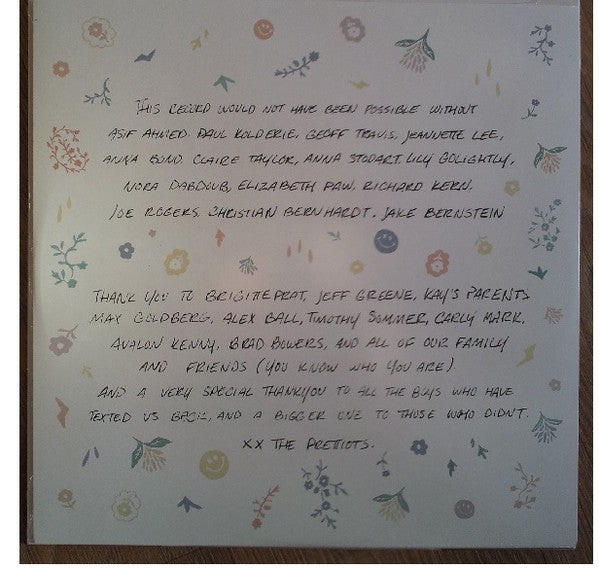 THIS RECORD WOULD NOT HAVE BEEN POSSIBLE WITHOUT
ASIF AHMED. PAUL KOLDERIE, GEOFF TRAVIS, JEANNETTE LEE,
ANNA BOND CLAIRE TAYLOR, ANNA STODART. LILY GOLIGHTLY,
NORA DABDOUB, ELIZABETH PAW, RICHARD KERN.
JOE ROGERS, CHRISTIAN BERNHARDT. JAKE BERNSTEIN
THANK YOU TO BRIGITEPRAT, JEFF GREENE, KAY'S PARENTS
MAX GOLDBERG, ALEX BALL, TIMOTHY SOMMER, CARLY MARK,
AVALON KENNY, BRAD BOWERS, AND ALL OF OUR FAMILY
AND FRIENDS (YOU KNOW WHO YOU ARE)
AND A VERY SPECIAL THANKYOU TO ALL THE BOYS WHO HAVE
TEXTED US BACK, AND A BIGGER ONE TO THOSE WHO DIDN'T.
XX THE PRETTIOTS.